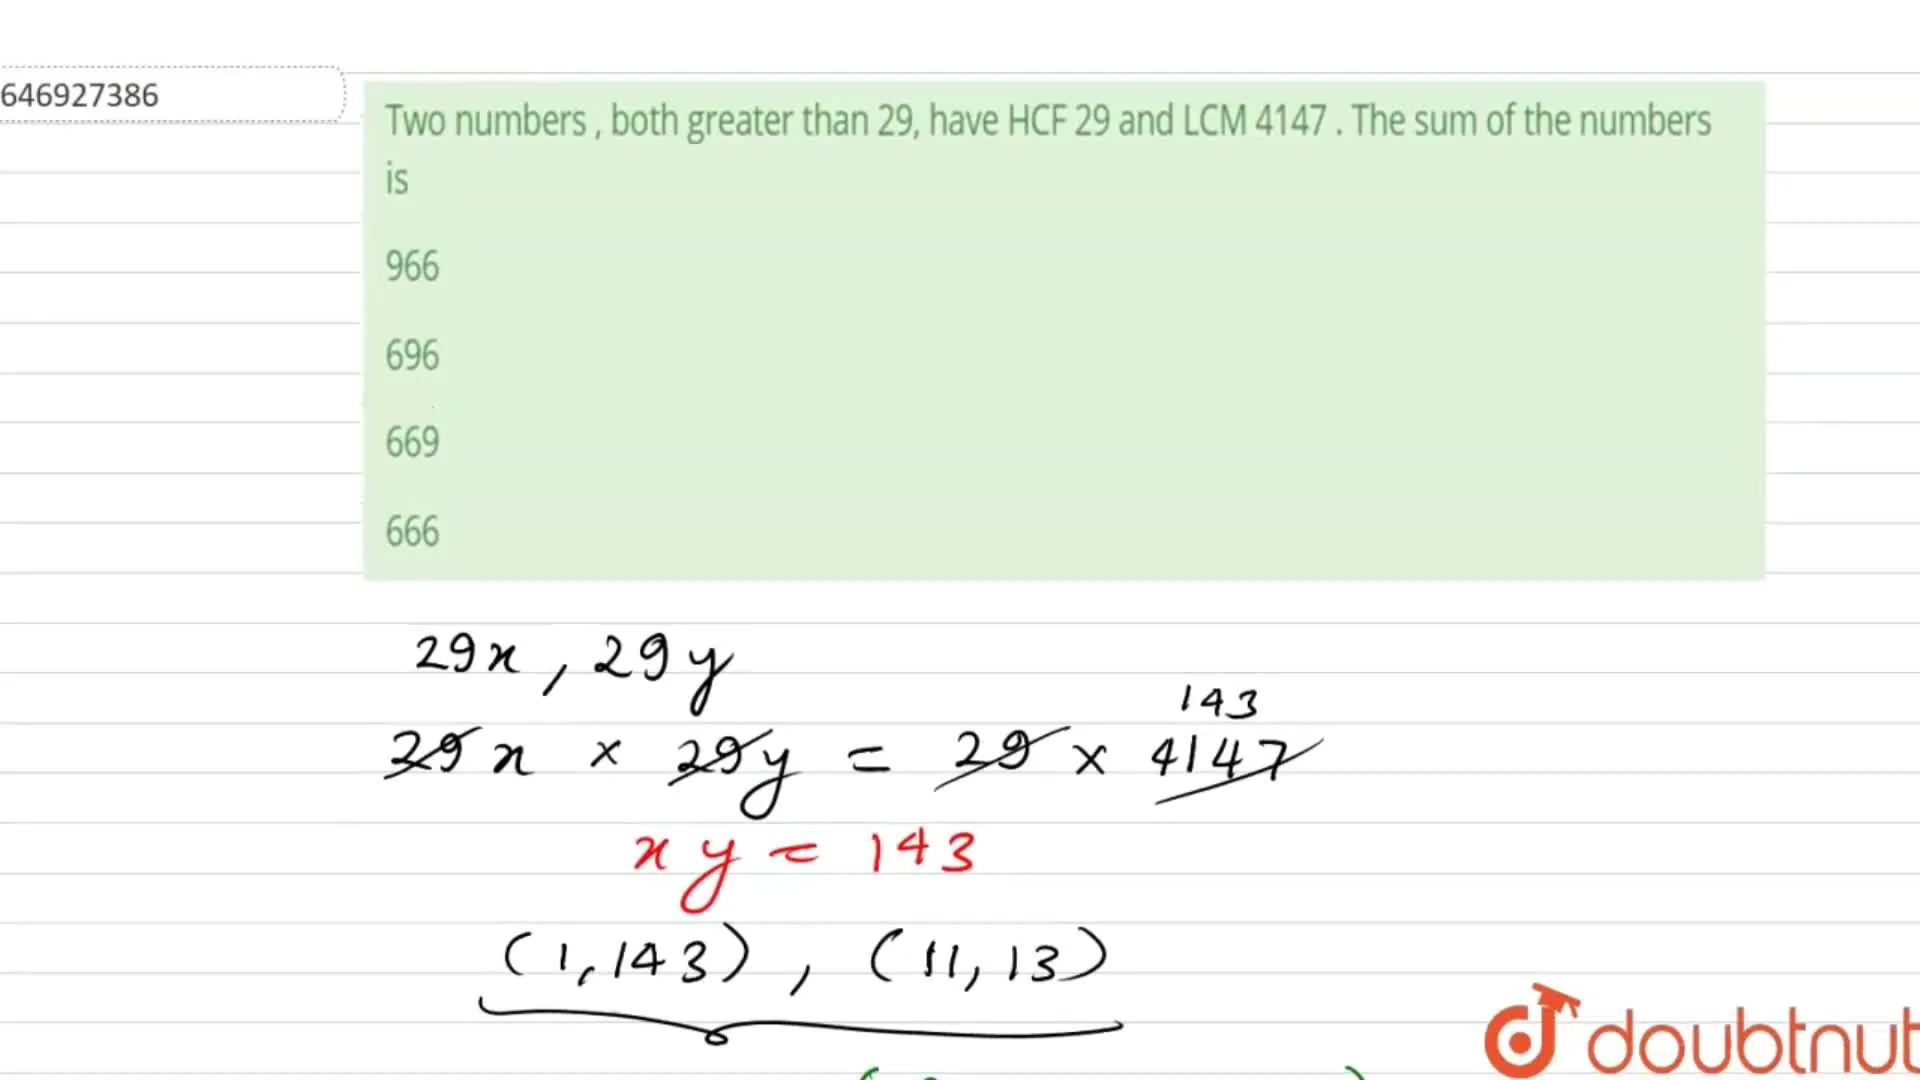 646927386
Two numbers , both greater than 29, have HCF 29 and LCM 4147 . The sum of the numbers
is
966
696
669
666
29x , 29y
143
29x × 29y = 29 × 4147
xy = 143
(1,143) , (11,13)
doubtnut